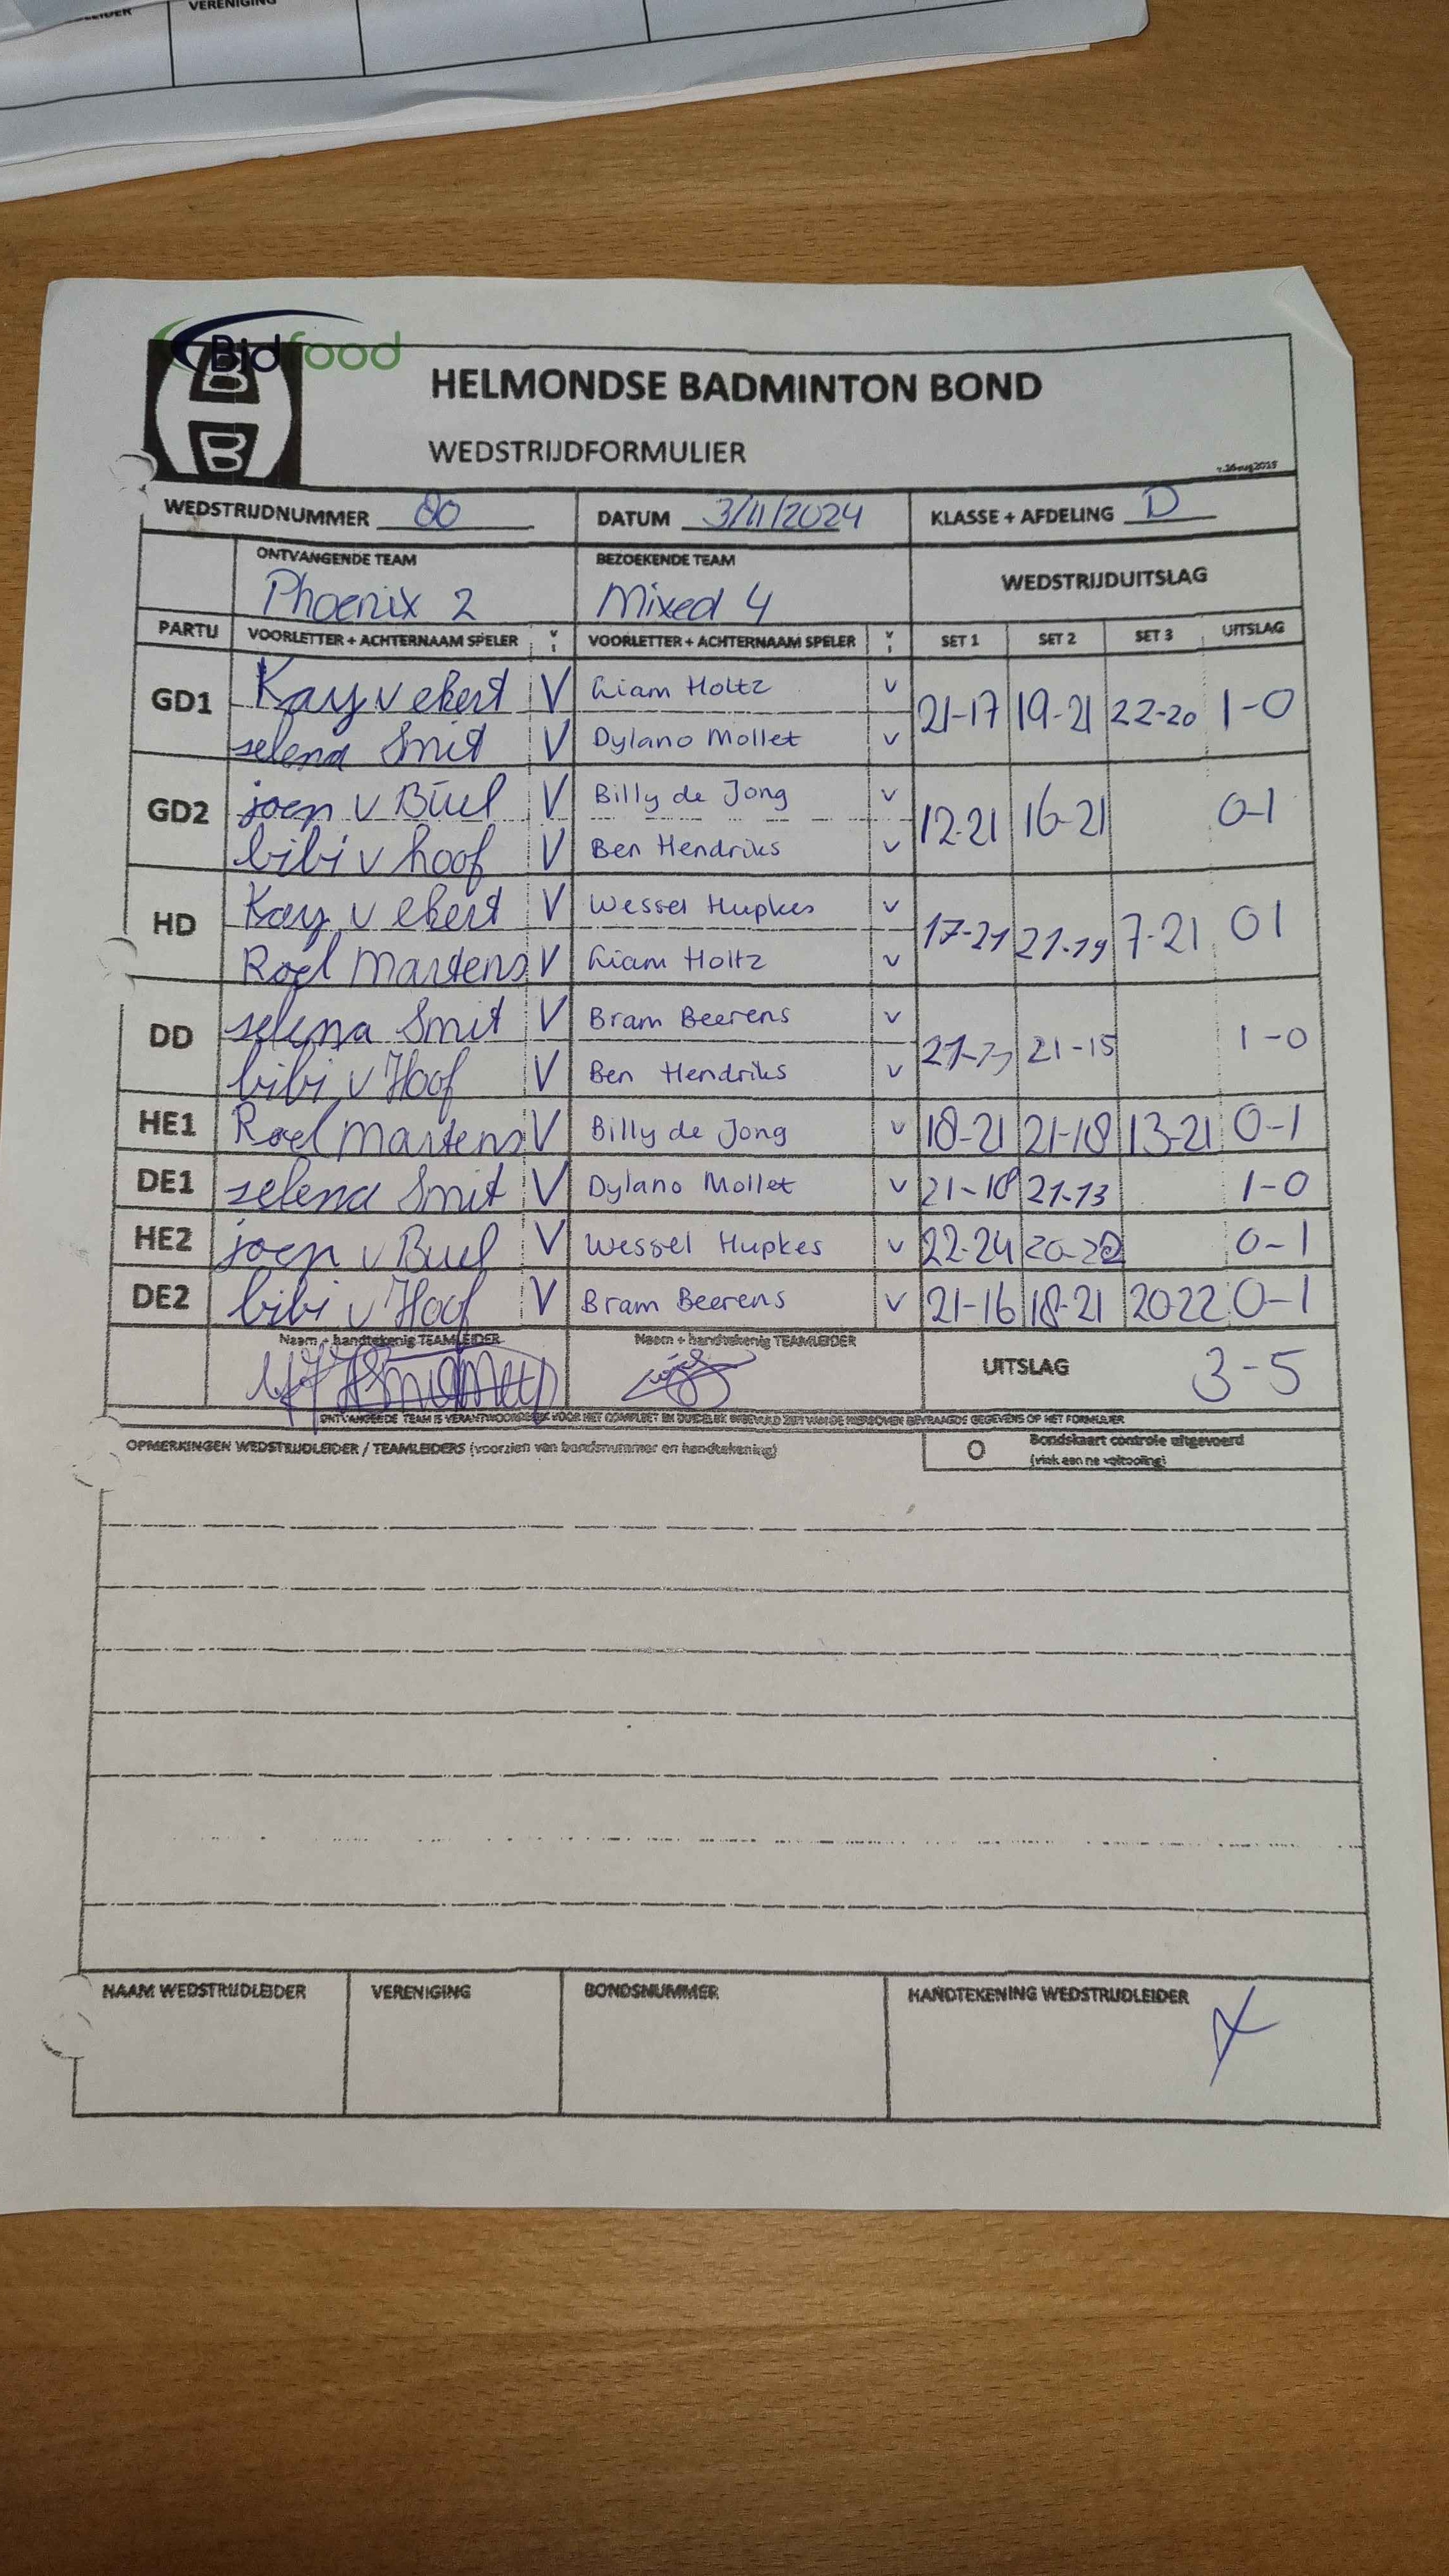 VERENIGING
Bidfood
B
B
HELMONDSE BADMINTON BOND
WEDSTRIJDFORMULIER
WEDSTRIJDNUMMER 80 DATUM 3/11/2024 KLASSE + AFDELING D
ONTVANGENDE TEAM BEZOEKENDE TEAM WEDSTRIJDUITSLAG
Phoenix 2 Mixed 4
PARTIJ VOORLETTER + ACHTERNAAM SPELER VOORLETTER + ACHTERNAAM SPELER SET 1 SET 2 SET 3 UITSLAG
GD1 Kay v ekert V Liam Holtz v 21-17 19-21 22-20 1-0
selena Smit V Dylano Mollet v
GD2 joep v Buel V Billy de Jong v 12-21 16-21 0-1
bibi v hoof V Ben Hendriks v
HD Kay v ekert V Wessel Hupkes v 17-21 21-19 7-21 0 1
Roel Martens V Liam Holtz v
DD selena Smit V Bram Beerens v 21-15 1-0
bibi v Hoof V Ben Hendriks v
HE1 Roel Martens V Billy de Jong v 18-21 21-18 13-21 0-1
DE1 selena Smit V Dylano Mollet v 21-18 21-13 1-0
HE2 joep v Buel V Wessel Hupkes v 22-24 20-22 0-1
DE2 bibi v Hoof V Bram Beerens v 21-16 18-21 20 22 0-1
Naam + handtekenig TEAMLEIDER Naam + handtekenig TEAMLEIDER UITSLAG 3-5
ONTVANGENDE TEAM IS VERANTWOORDELIJK VOOR HET COMPLEET EN DUIDELIJK INGEVULD ZIJN VAN DE HIERBOVEN GEVRAAGDE GEGEVENS OP HET FORMULIER
OPMERKINGEN WEDSTRIJDLEIDER / TEAMLEIDERS (voorzien van bondsnummer en handtekening) O Bondskaart controle uitgevoerd
NAAM WEDSTRIJDLEIDER VERENIGING BONDSNUMMER HANDTEKENING WEDSTRIJDLEIDER